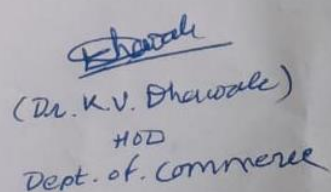 Dhawale
(Dr. K.V. Dhawale)
HOD
Dept. of. Commerce